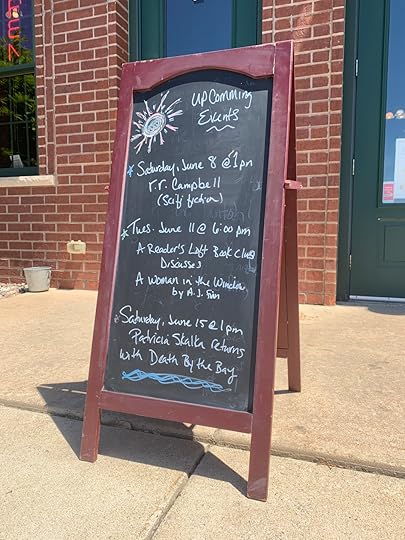 UpComming
Events
Saturday, June 8 @ 1pm
r.r. Campbell
(Scifi fiction)
Tues. June 11 @ 6:00 pm
A Reader's Loft Book Club
Discusses
A Woman in the Window
by A.J. Finn
Saturday, June 15 @ 1pm
Patricia Skalka returns
with Death By the Bay